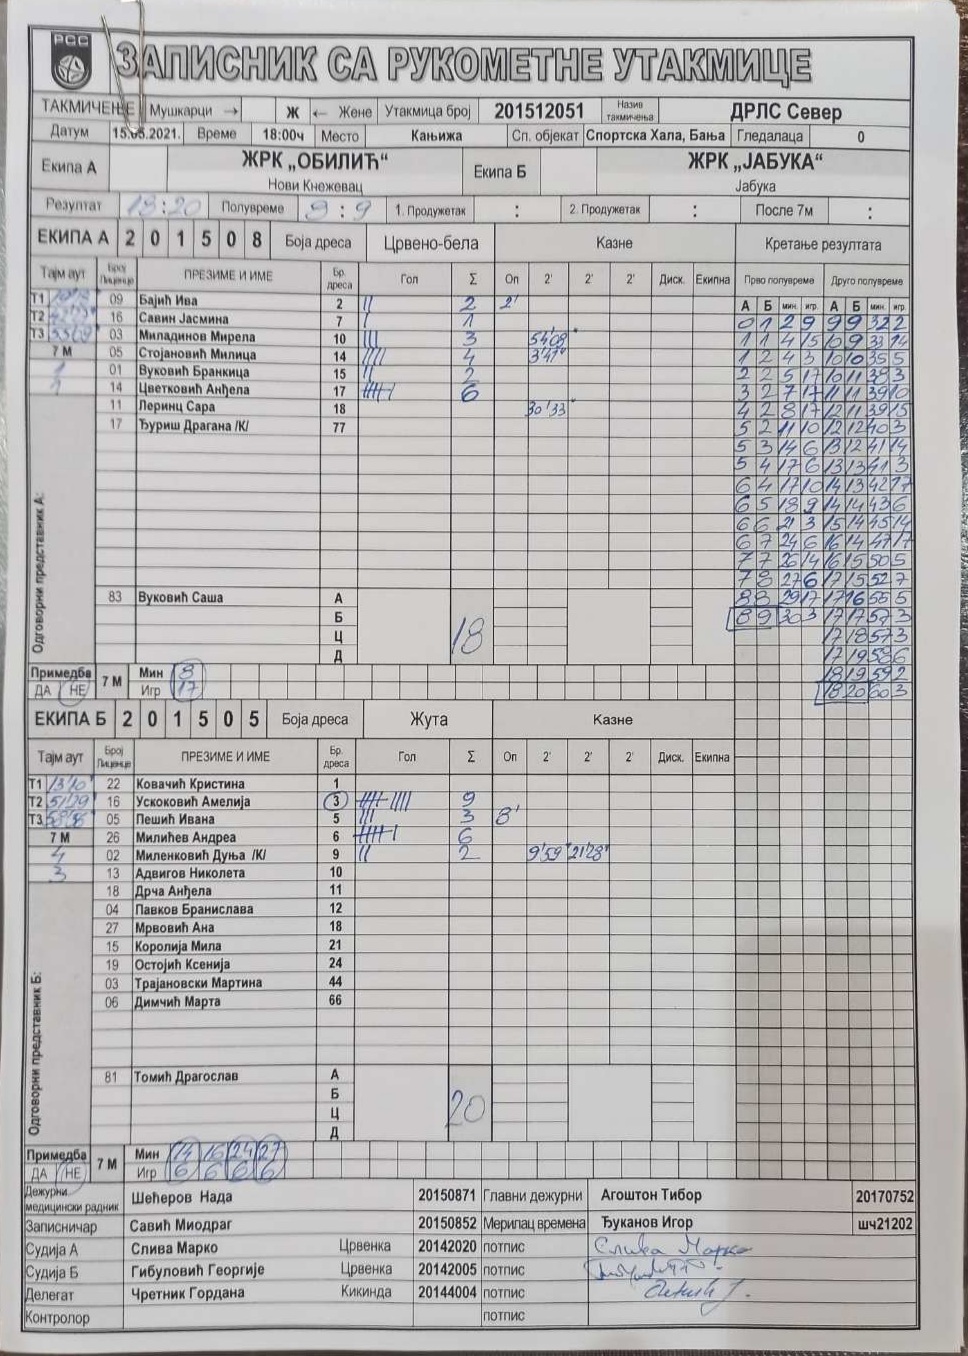 РСС
ЗАПИСНИК СА РУКОМЕТНЕ УТАКМИЦЕ
ТАКМИЧЕЊЕ Мушкарци → Ж ← Жене Утакмица број 201512051 Назив такмичења ДРЛС Север
Датум 15.05.2021. Време 18:00ч Место Кањижа Сп. објекат Спортска Хала, Бања Гледалаца 0
Екипа А ЖРК „ОБИЛИЋ“ Екипа Б ЖРК „ЈАБУКА“
Нови Кнежевац Јабука
Резултат 18:20 Полувреме 9:9 1. Продужетак : 2. Продужетак : После 7м :
ЕКИПА А 2 0 1 5 0 8 Боја дреса Црвено-бела Казне Кретање резултата
Тајм аут Број Лиценце ПРЕЗИМЕ И ИМЕ Бр. дреса Гол Σ Оп 2' 2' 2' Диск. Екипна Прво полувреме Друго полувреме
А Б мин. игр А Б мин. игр.
Т1 09 Бајић Ива 2 || 2 2'
Т2 16 Савин Јасмина 7 | 1 0 1 2 9 9 9 32 2
Т3 03 Миладинов Мирела 10 ||| 3 54'08" 1 1 4 15 10 9 33 14
7 М 05 Стојановић Милица 14 |||| 4 3'41" 1 2 4 3 10 10 35 5
1 01 Вуковић Бранкица 15 || 2 2 2 5 17 10 11 38 3
1 14 Цветковић Анђела 17 6 3 2 7 17 11 11 39 10
11 Леринц Сара 18 30'33" 4 2 8 17 12 11 39 15
17 Ђуриш Драгана /К/ 77 5 2 11 10 12 12 40 3
5 3 14 6 13 12 41 14
5 4 17 6 13 13 41 3
6 4 17 10 14 13 42 17
6 5 18 9 14 14 43 6
6 6 21 3 15 14 45 14
6 7 24 6 16 14 47 17
7 7 26 14 16 15 50 5
7 8 27 6 17 15 52 7
83 Вуковић Саша А 8 8 29 17 17 16 55 5
Б 8 9 30 3 17 17 57 3
Ц 18 17 18 57 3
Д 17 19 58 6
Одговорни представник А:
Примедба 7 М Мин 8 18 19 59 2
ДА НЕ Игр 17 18 20 60 3
ЕКИПА Б 2 0 1 5 0 5 Боја дреса Жута Казне
Тајм аут Број Лиценце ПРЕЗИМЕ И ИМЕ Бр. дреса Гол Σ Оп 2' 2' 2' Диск. Екипна
Т1 13'10" 22 Ковачић Кристина 1
Т2 51'29 16 Ускоковић Амелија 3 9
Т3 05 Пешић Ивана 5 ||| 3 8'
7 М 26 Милићев Андреа 6 6
4 02 Миленковић Дуња /К/ 9 || 2 9'59" 21'28"
3 13 Адвигов Николета 10
18 Дрча Анђела 11
04 Павков Бранислава 12
27 Мрвовић Ана 18
15 Королија Мила 21
19 Остојић Ксенија 24
03 Трајановски Мартина 44
06 Димчић Марта 66
81 Томић Драгослав А
Б
Ц 20
Д
Одговорни представник Б:
Примедба 7 М Мин 14 16 24 27
ДА НЕ Игр 6 6 6 6
Дежурни медицински радник Шећеров Нада 20150871 Главни дежурни Агоштон Тибор 20170752
Записничар Савић Миодраг 20150852 Мерилац времена Ђуканов Игор шч21202
Судија А Слива Марко Црвенка 20142020 потпис Слива Марко
Судија Б Гибуловић Георгије Црвенка 20142005 потпис
Делегат Чретник Гордана Кикинда 20144004 потпис
Контролор потпис